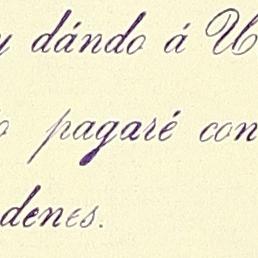 y dándo á U
o pagaré con
denes.